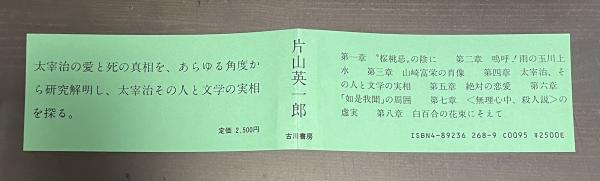 太宰治の愛と死の真相を、あらゆる角度か
ら研究解明し、太宰治その人と文学の実相
を探る。
定価 2,500円
片山英一郎
古川書房
第一章 〝桜桃忌〟の陰に 第二章 嗚呼!雨の玉川上
水 第三章 山崎富栄の肖像 第四章 太宰治、そ
の人と文学の実相 第五章 絶対の恋愛 第六章
「如是我聞」の周囲 第七章 〈無理心中、殺人説〉の
虚実 第八章 白百合の花束にそえて
ISBN4-89236 268-9 C0095 ¥2500E